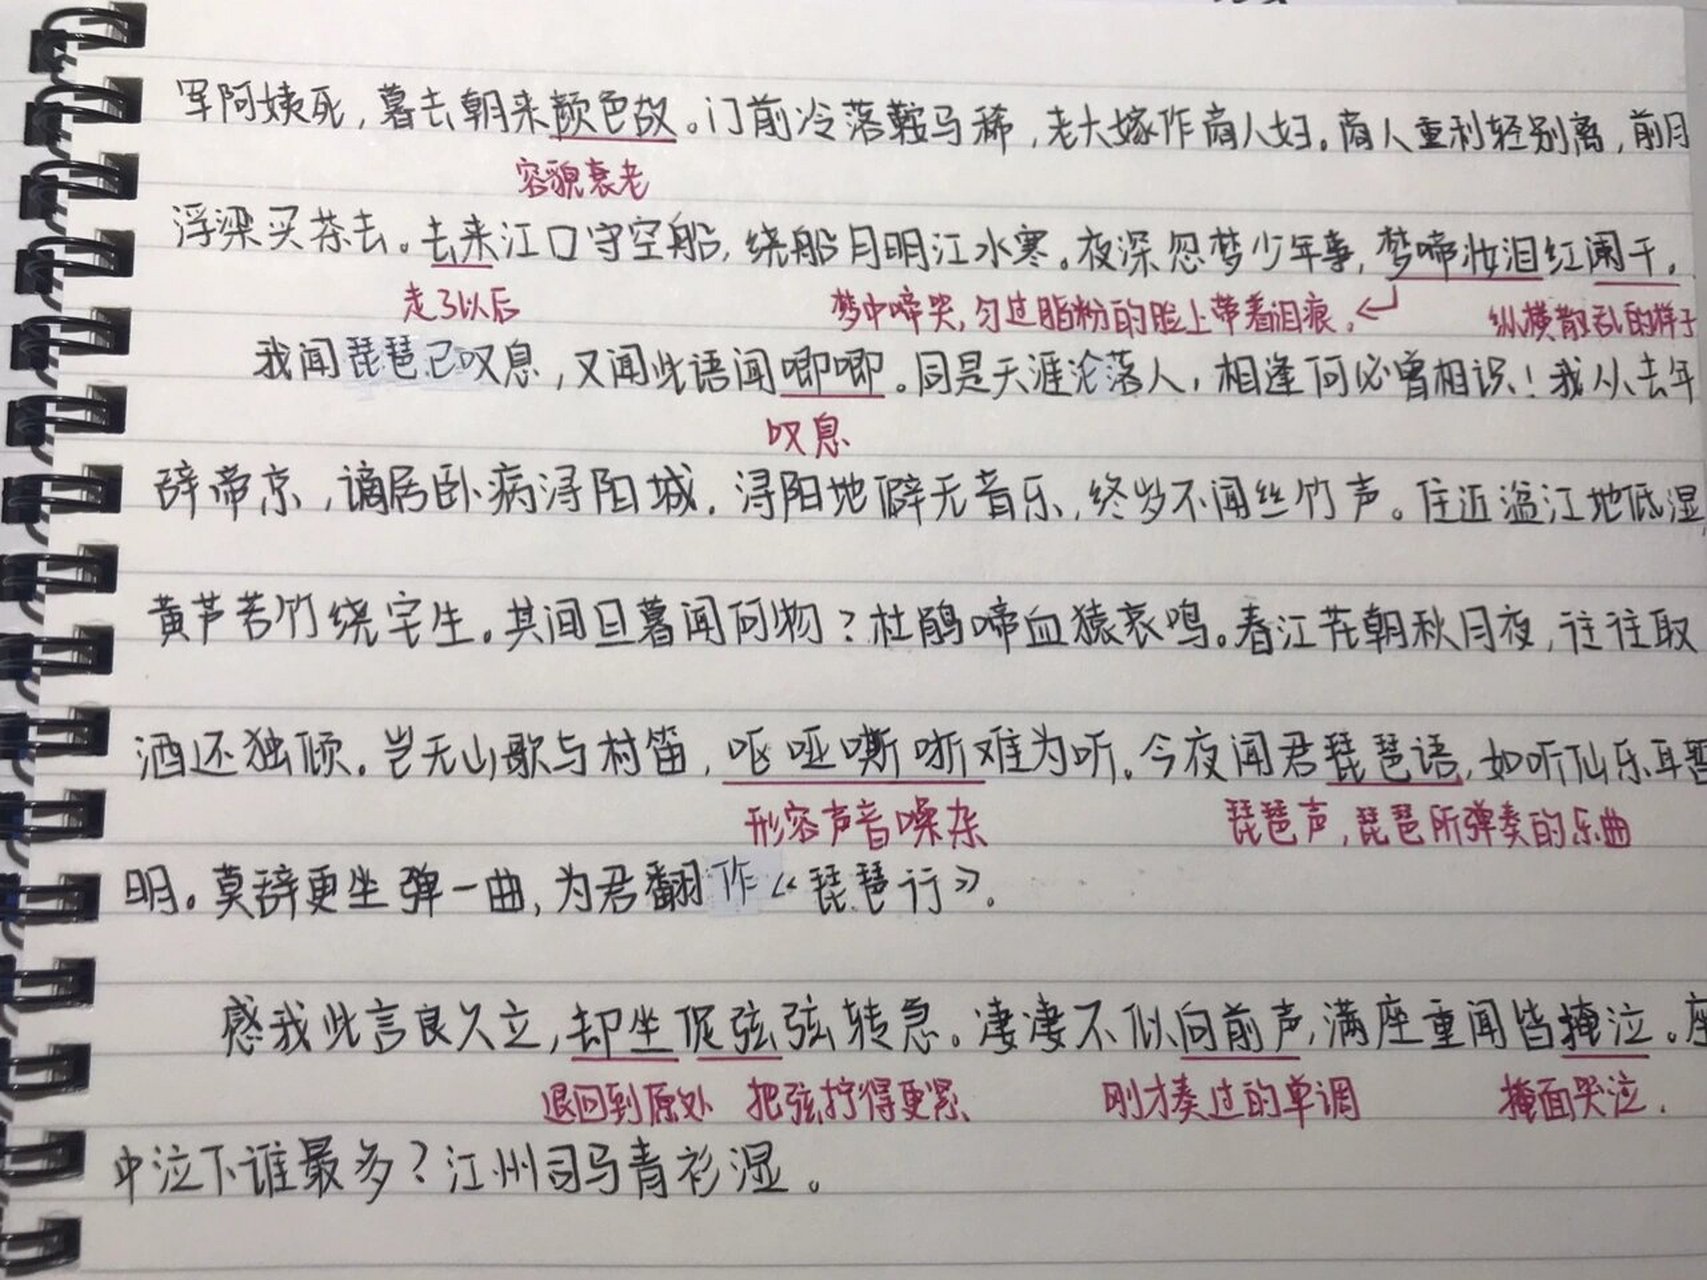 军阿姨死，暮去朝来颜色故。门前冷落鞍马稀，老大嫁作商人妇。商人重利轻别离，前月
容貌衰老
浮梁买茶去。去来江口守空船，绕船月明江水寒。夜深忽梦少年事，梦啼妆泪红阑干。
走了以后 梦中啼哭，匀过脂粉的脸上带着泪痕。 纵横散乱的样子
我闻琵琶已叹息，又闻此语闻唧唧。同是天涯沦落人，相逢何必曾相识！我从去年
叹息
辞帝京，谪居卧病浔阳城。浔阳地僻无音乐，终岁不闻丝竹声。住近湓江地低湿，
黄芦苦竹绕宅生。其间旦暮闻何物？杜鹃啼血猿哀鸣。春江花朝秋月夜，往往取
酒还独倾。岂无山歌与村笛，呕哑嘶哳难为听。今夜闻君琵琶语，如听仙乐耳暂
形容声音嘈杂 琵琶声，琵琶所弹奏的乐曲
明。莫辞更坐弹一曲，为君翻作《琵琶行》。
感我此言良久立，却坐促弦弦转急。凄凄不似向前声，满座重闻皆掩泣。座
退回到原处 把弦拧得更紧 刚才奏过的单调 掩面哭泣.
中泣下谁最多？江州司马青衫湿。